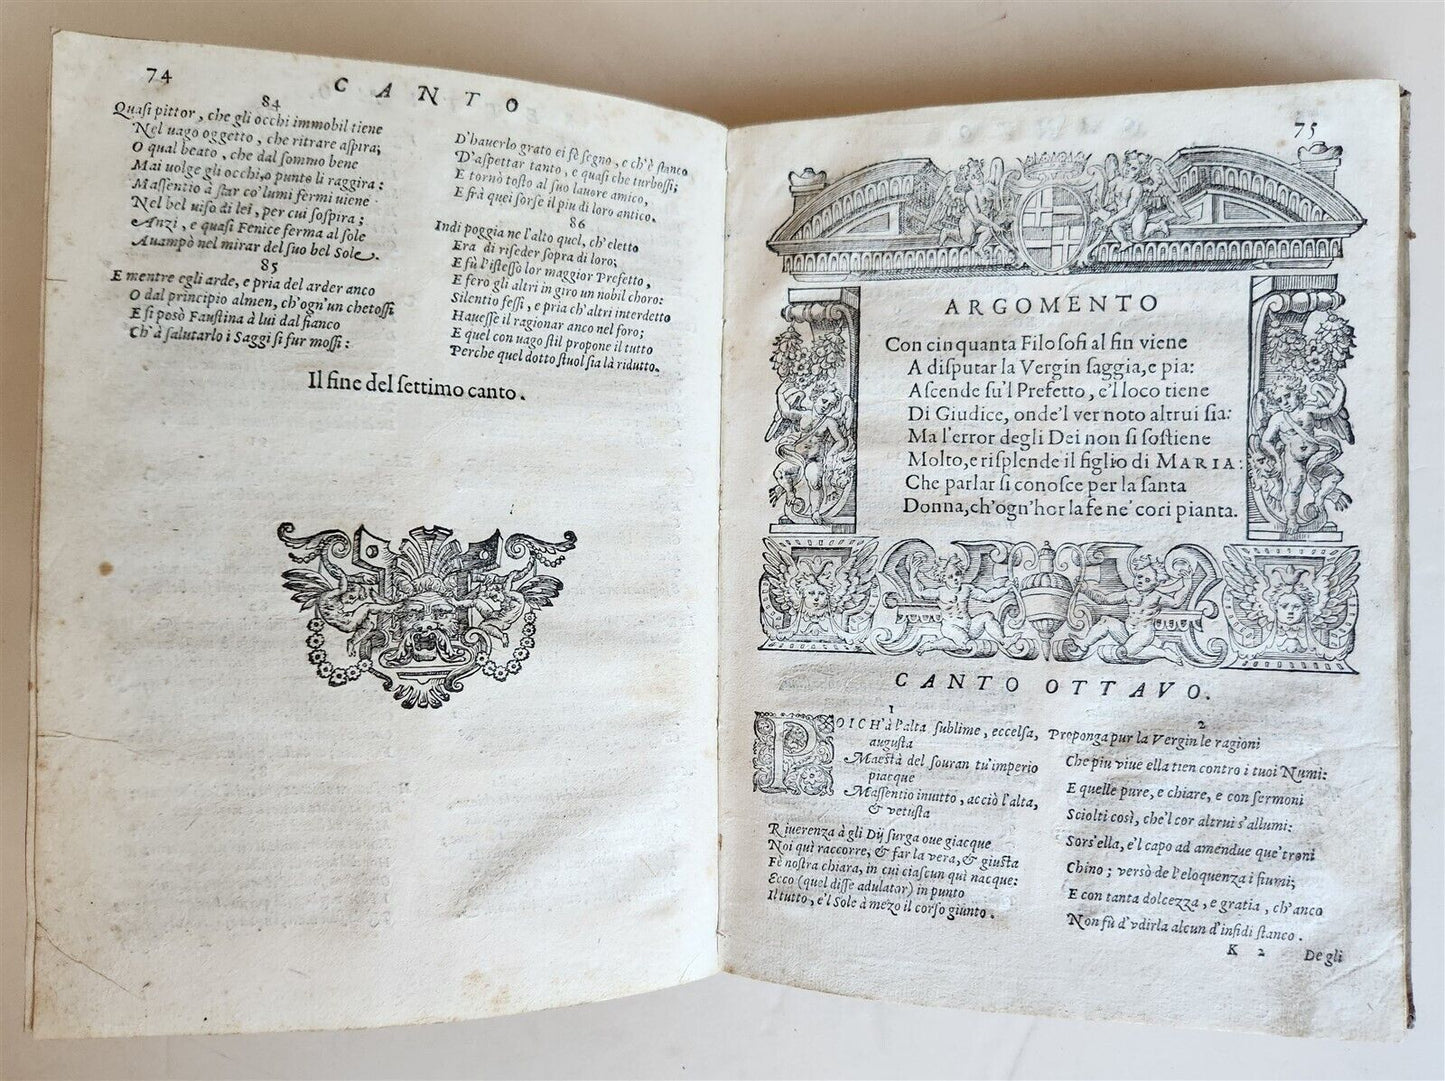 74
CANTO
84
Quasi pittor, che gli occhi immobil tiene
Nel uago oggetto, che ritrare aspira;
O qual beato, che dal sommo bene
Mai uolge gli occhi, o punto li raggira:
Massentio à star co' lumi fermi uiene
Nel bel uiso di lei, per cui sospira;
Anzi, e quasi Fenice ferma al sole
Auampò nel mirar del suo bel Sole.
85
E mentre egli arde, e pria del arder anco
O dal principio almen, ch'ogn'un chetossi
E si posò Faustina à lui dal fianco
Ch'à salutarlo i Saggi si fur mossi:
D'hauerlo grato ei fè segno, e ch'è stanco
D'aspettar tanto, e quasi che turbossi;
E tornò tosto al suo lauore amico,
E frà quei sorse il piu di loro antico.
86
Indi poggia ne l'alto quel, ch'eletto
Era di riseder sopra di loro;
E fù l'istesso lor maggior Prefetto,
E fero gli altri in giro un nobil choro:
Silentio fessi, e pria ch'altri interdetto
Hauesse il ragionar anco nel foro;
E quel con uago stil propone il tutto
Perche quel dotto stuol sia là ridutto.
Il fine del settimo canto.
75
ARGOMENTO
Con cinquanta Filosofi al fin viene
A disputar la Vergin saggia, e pia:
Ascende su'l Prefetto, e'l loco tiene
Di Giudice, onde'l ver noto altrui sia:
Ma l'error degli Dei non si sostiene
Molto, e risplende il figlio di MARIA:
Che parlar si conosce per la santa
Donna, ch'ogn'hor la fe ne' cori pianta.
CANTO OTTAVO.
1
POICH'à l'alta sublime, eccelsa,
augusta
Maestà del souran tu' imperio
piacque
Massentio inuitto, acciò l'alta,
& vetusta
Riuerenza à gli Dij surga oue giacque
Noi quì raccorre, & far la vera, & giusta
Fè nostra chiara, in cui ciascun quì nacque:
Ecco (quel disse adulator) in punto
Il tutto, e'l Sole à mezo il corso giunto.
2
Proponga pur la Vergin le ragioni
Che piu viue ella tien contro i tuoi Numi:
E quelle pure, e chiare, e con sermoni
Sciolti così, che'l cor altrui s'allumi:
Sors'ella, e'l capo ad amendue que' troni
Chino; versò de l'eloquenza i fiumi;
E con tanta dolcezza, e gratia, ch'anco
Non fù d'vdirla alcun d'infidi stanco.
K 2
De gli